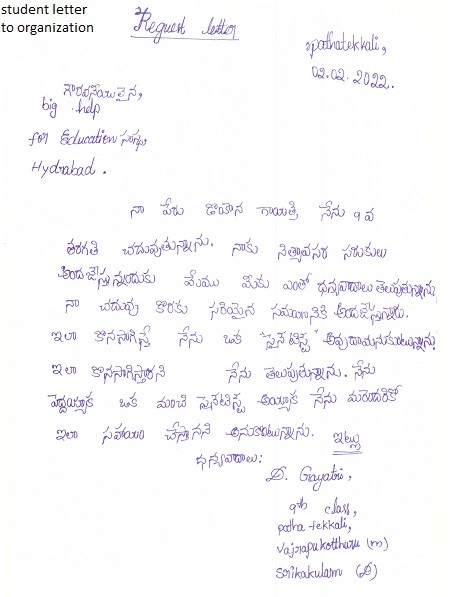 student letter
to organization
Request letter
pathatekkali,
02.02.2022.
గౌరవనీయులైన,
big help
for Education సంస్థ
Hydrabad.
నా పేరు డాయాన గాయత్రి నేను 9 వ
తరగతి చదువుతున్నాను. నాకు నిత్యావసర సరుకులు
అందజేస్తున్నందుకు మేము మీకు ఎంతో ధన్యవాదాలు తెలుపుతున్నాను
నా చదువు కొరకు సరియైన సమయానికి అందజేస్తున్నారు.
ఇలా కొనసాగిస్తే నేను ఒక సైనేటిస్ట్ అవుదామనుకుంటున్నాను.
ఇలా కొనసాగిస్తారని నేను తెలుపుతున్నాను. నేను
పెద్దయ్యాక ఒక మంచి సైనేటిస్ట్ అయ్యాక నేను మరెందరికో
ఇలా సహాయం చేస్తానని అనుకుంటున్నాను.
ఇట్లు
ధన్యవాదాలు:
D. Gayatri,
9th class,
patha tekkali,
vajrapukotthuru (m)
srikakulam (D)